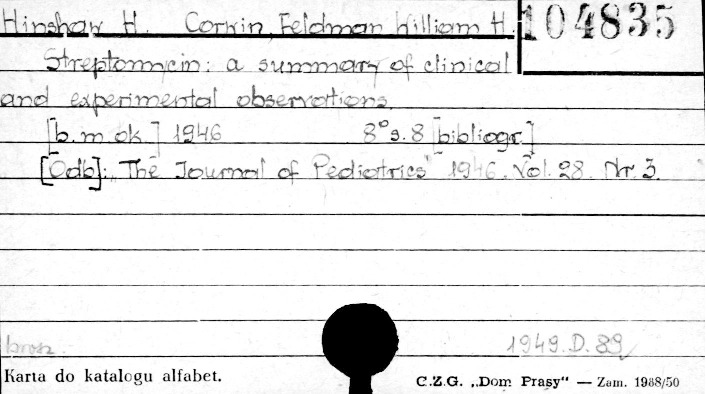 Hinshaw H. Corwin, Feldman William H.
104835
Streptomycin: a summary of clinical
and experimental observations.
[b. m. ok.] 1946 8° s. 8 [bibliogr.]
[Odb]: "The Journal of Pediatrics" 1946. Vol. 28. Nr. 3.
brosz.
1949. D. 89
Karta do katalogu alfabet.
C.Z.G. „Dom Prasy" — Zam. 1938/50